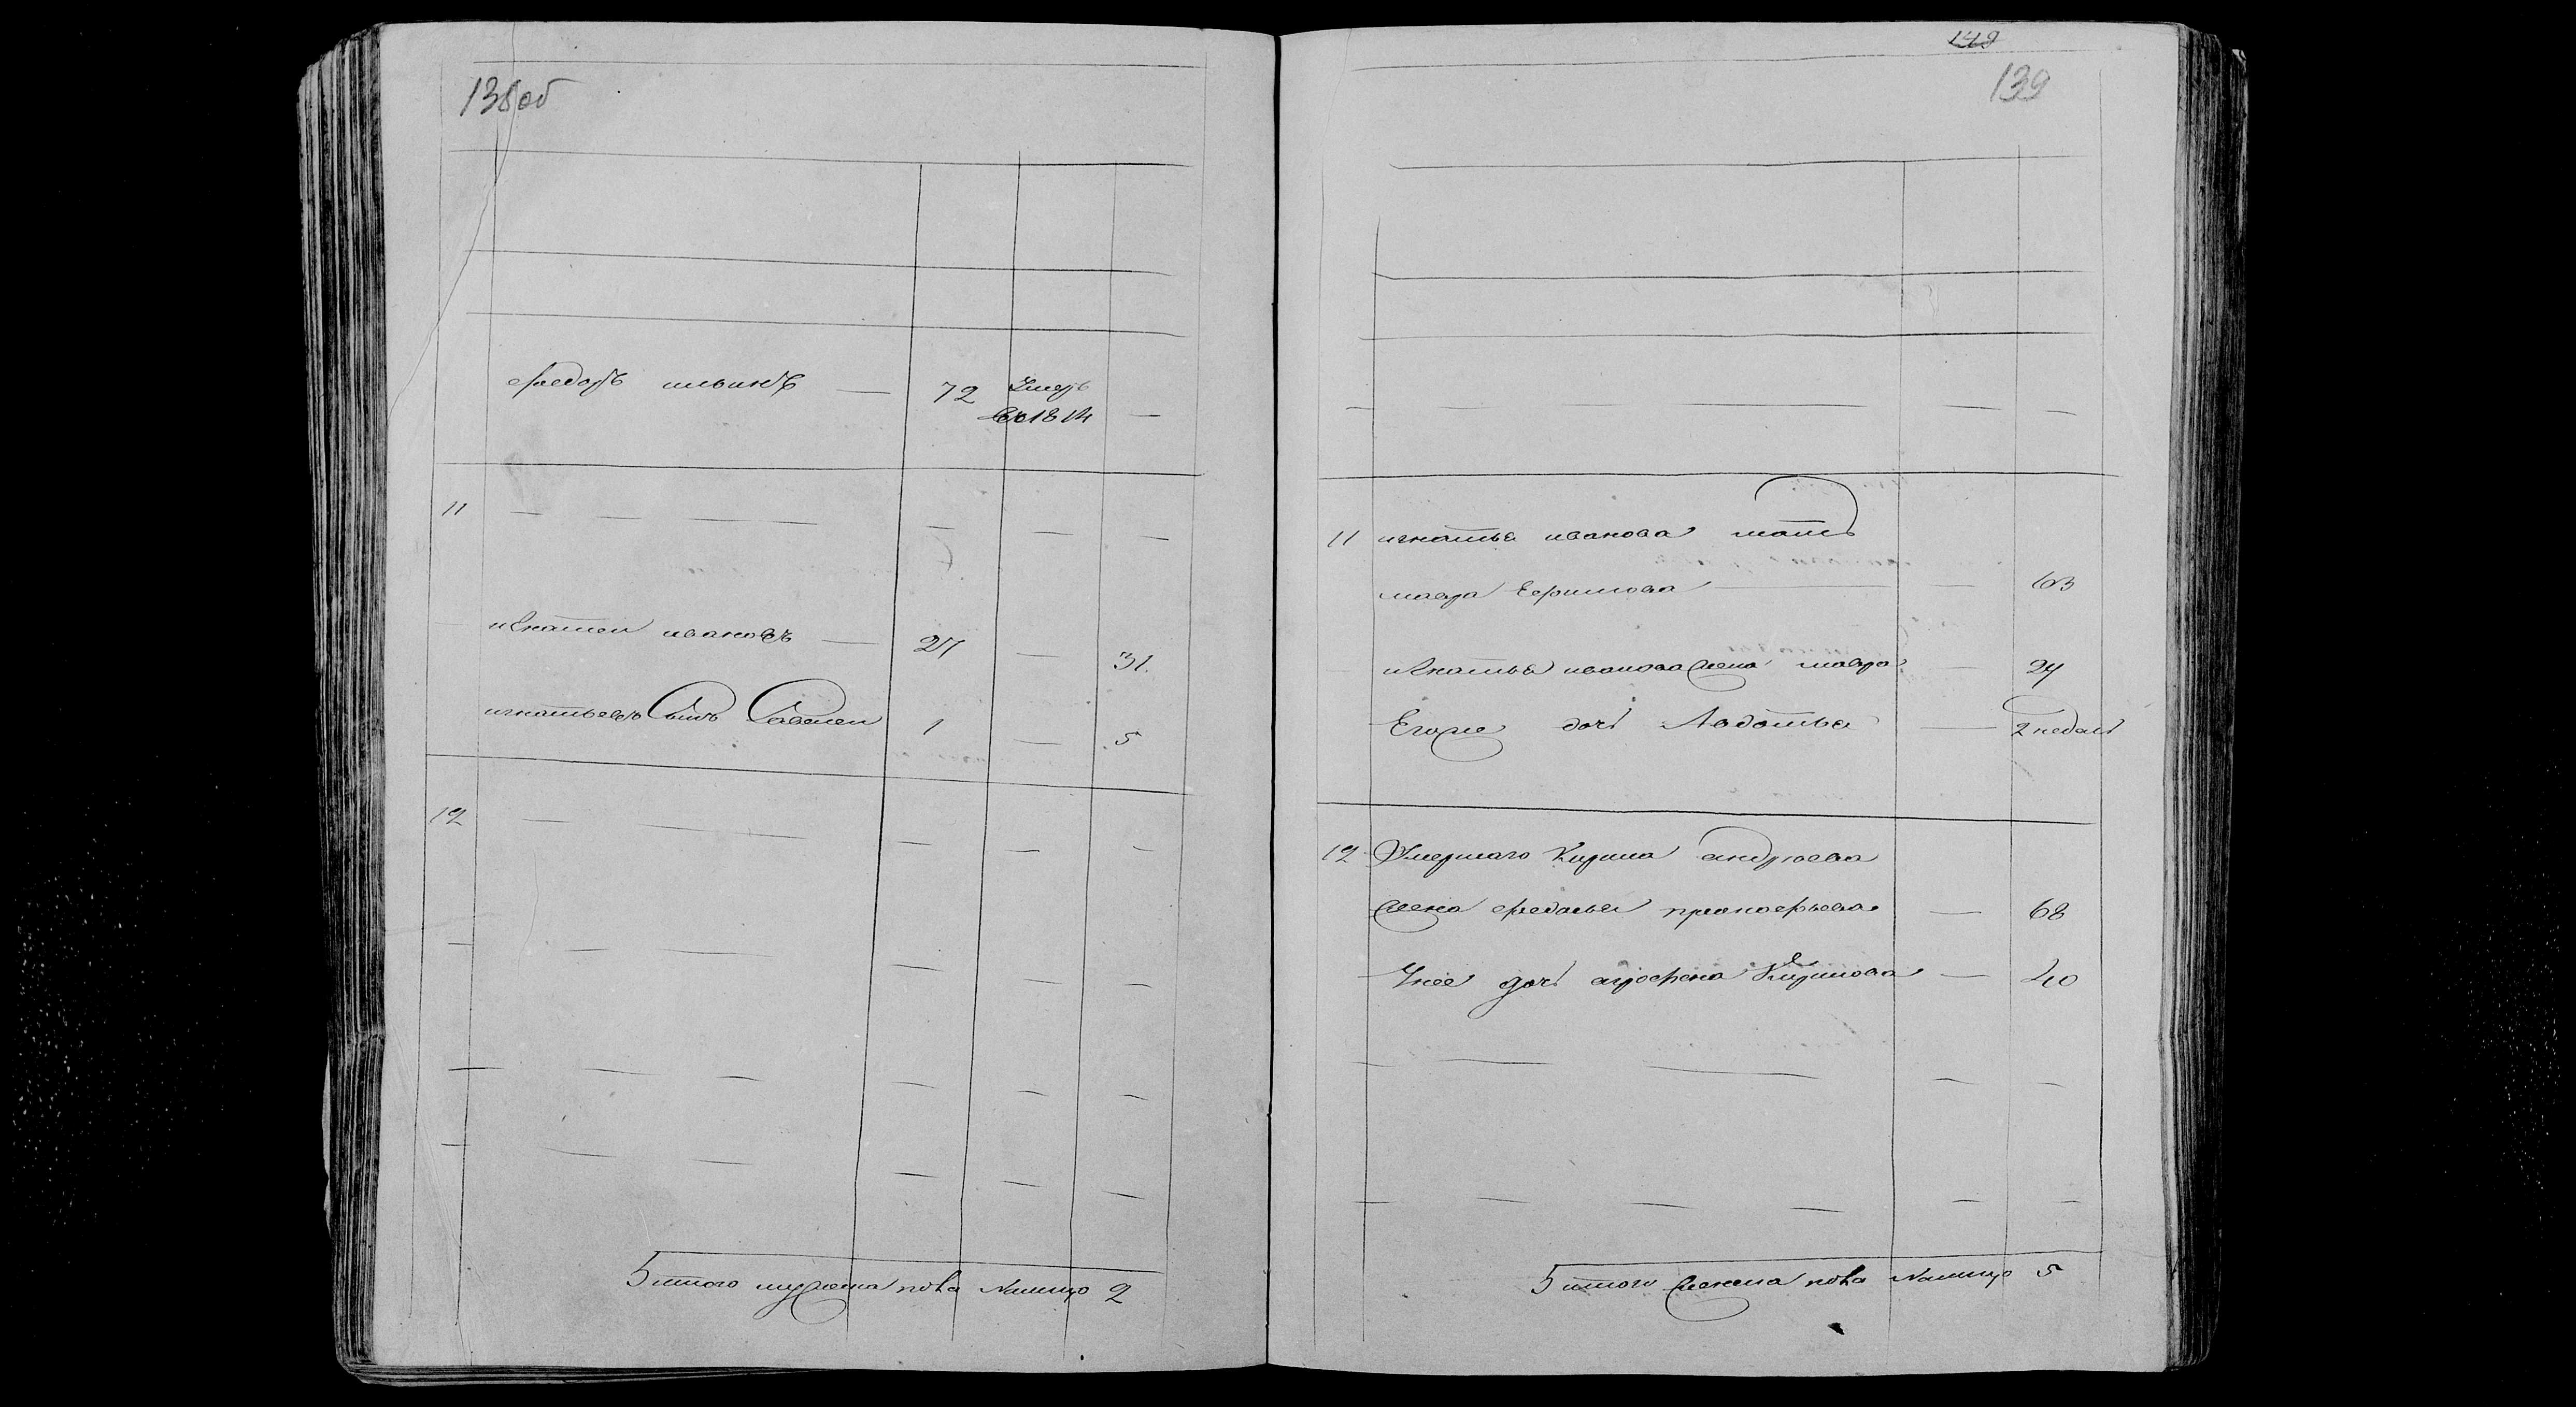 138об
федоръ ильинъ — 72 Умеръ
въ 1814 —
11 — — — — — — —
игнатеи ивановъ — 27 — 31.
игнатьевъ Сынъ Савелеи 1 — 5
12 — — — — — —
итого мужеска пола Налицо 2
149
139
11 игнатья иванова мать
мавра Ефимова — — 63
игнатья иванова жена мавра — 27
Егоже дочь — 2 недели
12 Умершаго Кирила андреева
жена федосья прокофьева — 68
Унее дочь агрефена Кирилова — 40
итого женска пола Налицо 5